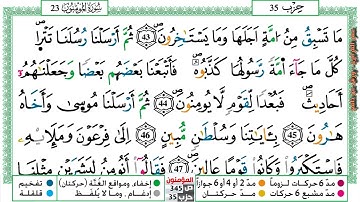 23 سُورَةُ المُؤمِنُون
حِزب 35
مَا تَسْبِقُ مِنُ امَّةٍ اَجَلَهَا وَمَا يَسْتَاخِرُونَ 43 ثُمَّ أَرْسَلْنَا رُسُلَنَا تَتْرَا
كُلَّ مَا جَآءَ امَّةً رَّسُولُهَا كَذَّبُوهُ فَأَتْبَعْنَا بَعْضَهُم بَعْضًا وَجَعَلْنَٰهُمُۥٓ
أَحَادِيثَ فَبُعْدًا لِّقَوْمٍ لَّا يُومِنُونَ 44 ثُمَّ أَرْسَلْنَا مُوسَىٰ وَأَخَاهُ
هَٰرُونَ 45 بِـَٔايَٰتِنَا وَسُلْطَٰنٍ مُّبِينٍ 46 إِلَىٰ فِرْعَوْنَ وَمَلَإِيْهِۦ
فَاسْتَكْبَرُوا وَكَانُوا قَوْمًا عَالِينَ 47 فَقَالُوٓا أَنُومِنُ لِبَشَرَيْنِ مِثْلِنَا
مدّ 6 حركات لزوماً مدّ 2 أو 4 أو 6 جوازاً إخفاء، ومواقع الغُنَّة (حركتان) تفخيم
مدّ مشبع 6 حركات مدّ حركتان إدغام، وما لا يُلفَظ قلقلة
المؤمنون
ص 345
حزب 35